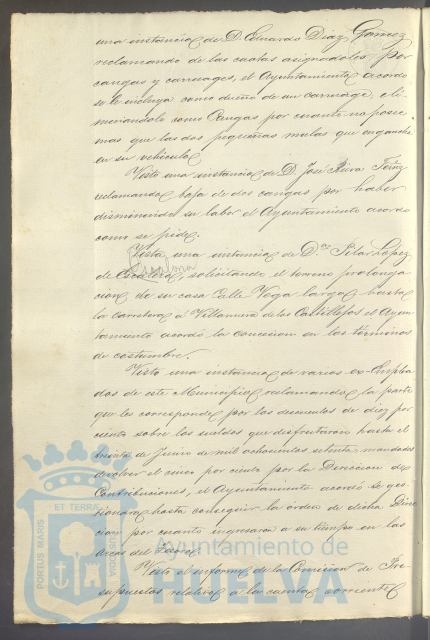 una instancia de D. Eduardo Diaz Gomez
reclamando de las cuotas asignadas por
cangas y carruages, el Ayuntamiento acordó
se le incluya como dueño de un carruage, eli-
minandole como Cangas por cuanto no posee
mas que las dos pequeñas mulas que engancha
en su vehiculo
Vista una instancia de D. José
reclamando baja de dos cangas por haber
disminuido su labor el Ayuntamiento acordó
como se pide.
Vista una instancia de D.ª Pilar Lopez
de solicitando el terreno prolonga-
cion de su casa Calle Vega larga hasta
la carretera á Villanueva de los Castillejos el Ayun-
tamiento acordó la concesion en los términos
de costumbre.
Visto una instancia de varios ex-Emplea-
dos de este Municipio reclamando la parte
que les corresponde por los descuentos de diez por
ciento sobre los sueldos que disfrutaron hasta el
treinta de Junio de mil ochocientos setenta mandados
devolver el cinco por ciento por la Direccion de
Contribuciones, el Ayuntamiento acordó se ges-
tionara hasta conseguir la órden de dicha Direc-
cion por cuanto ingresaron a su tiempo en las
Arcas del
Visto el informe de la Comision de Pre-
supuestos relativo á la cuenta
PORTUS MARIS ET TERRAE
Ayuntamiento de
HUELVA